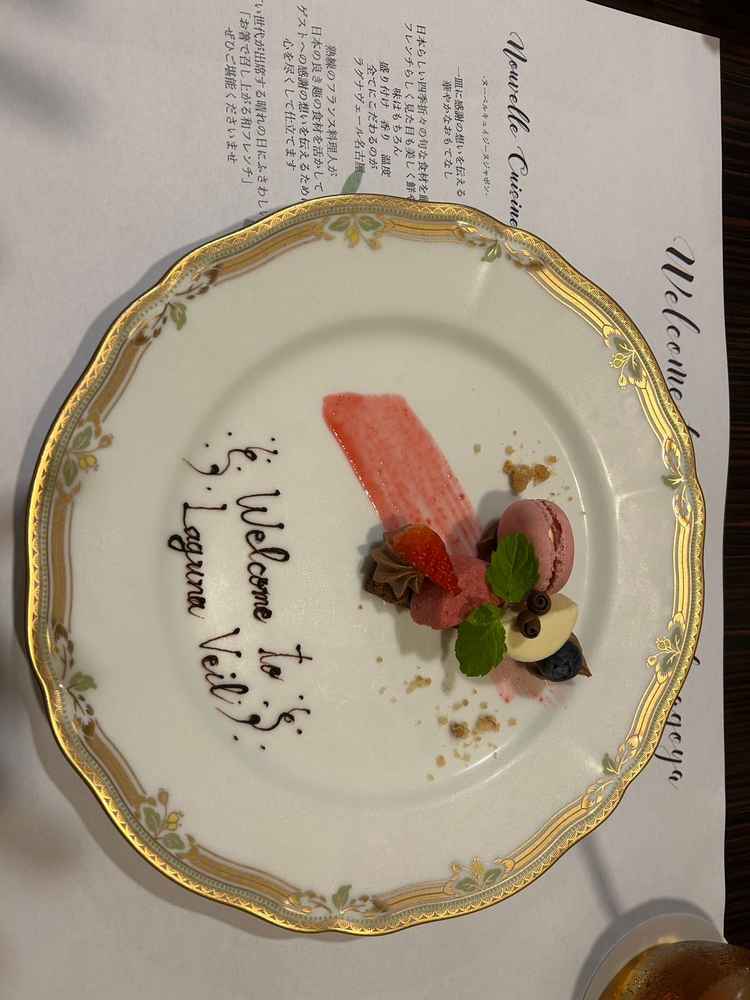 Welcome
Nagoya
Nouvelle Cuisine
-ヌーベルキュイジーヌジャポン-
一皿に感謝の想いを伝える
華やかなおもてなし
日本らしい四季折々の旬な食材を
フレンチらしく見た目も美しく鮮や
味はもちろん
盛り付け 香り 温度
全てにこだわるのが
ラグナヴェール名古屋
熟練のフランス料理人が
日本の良き趣の食材を活かして
ゲストへの感謝の想いを伝えるため
心を尽くして仕立てます
い世代が出席する晴れの日にふさわし
「お箸で召し上がる和フレンチ」
ぜひご堪能くださいませ
Welcome to
Laguna Veil